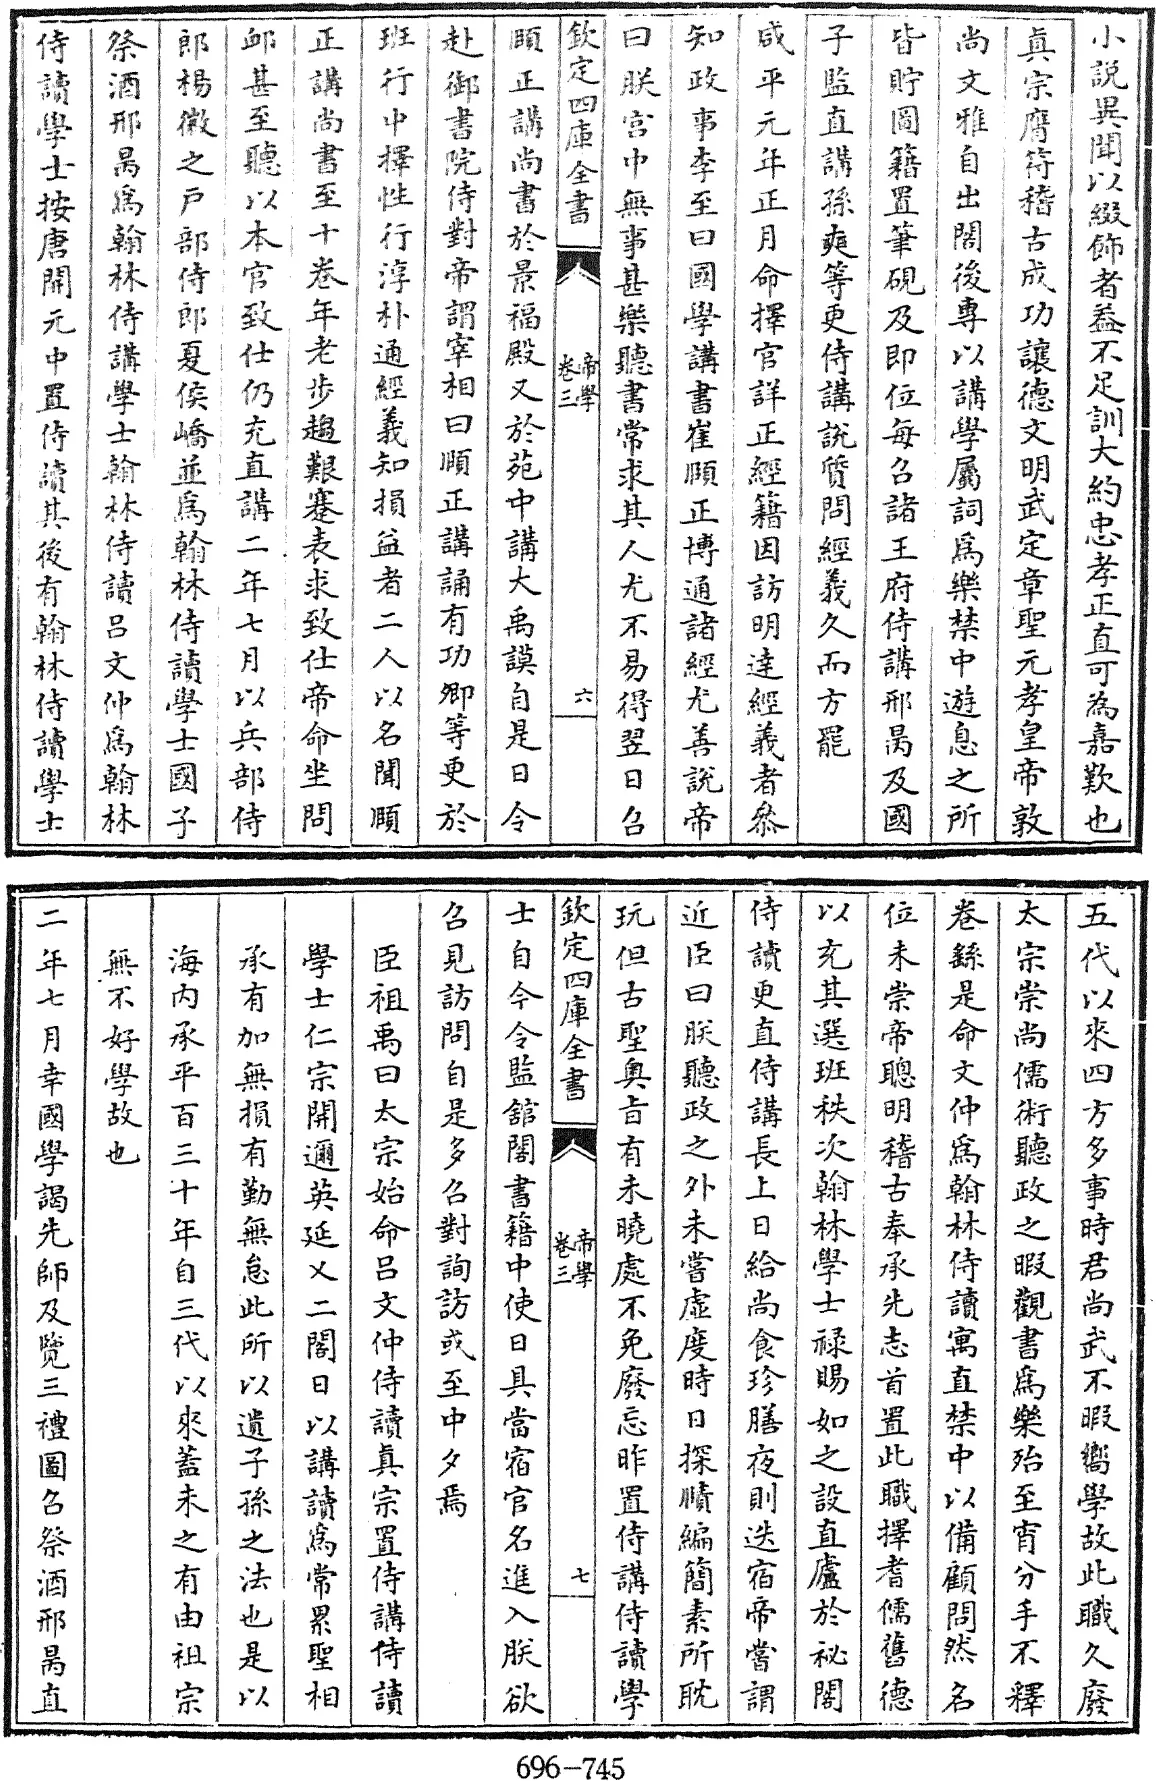 小説異聞以綴飾者益不足訓大約忠孝正直可為嘉歎也
真宗膺符稽古成功讓德文明武定章聖元孝皇帝敦
尚文雅自出閤後專以講學屬詞爲樂禁中遊息之所
皆貯圖籍置筆硯及即位每召諸王府侍講邢昺及國
子監直講孫奭等更侍講說質問經義久而方罷
咸平元年正月命擇官詳正經籍因訪明達經義者叅
知政事李至曰國學講書崔頤正博通諸經尤善說帝
曰朕宮中無事甚樂聽書常求其人尤不易得翌日召
欽定四庫全書
帝學
卷三
六
頤正講尚書於景福殿又於苑中講大禹謨自是日令
赴御書院侍對帝謂宰相曰頤正講誦有功卿等更於
班行中擇性行淳朴通經義知損益者二人以名聞頤
正講尚書至十卷年老步趨艱蹇表求致仕帝命坐問
䘏甚至聽以本官致仕仍充直講二年七月以兵部侍
郎楊徽之戸部侍郎夏侯嶠並爲翰林侍讀學士國子
祭酒邢昺爲翰林侍講學士翰林侍讀呂文仲爲翰林
侍讀學士按唐開元中置侍讀其後有翰林侍讀學士
五代以來四方多事時君尚武不暇嚮學故此職久廢
太宗崇尚儒術聽政之暇觀書爲樂殆至宵分手不釋
卷繇是命文仲爲翰林侍讀寓直禁中以備顧問然名
位未崇帝聰明稽古奉承先志首置此職擇耆儒舊德
以充其選班秩次翰林學士禄賜如之設直廬於祕閣
侍讀更直侍講長上日給尚食珍膳夜則迭宿帝嘗謂
近臣曰朕聽政之外未嘗虛度時日探賾編簡素所耽
玩但古聖奥旨有未曉處不免廢忘昨置侍講侍讀學
欽定四庫全書
帝學
卷三
七
士自今令監舘閣書籍中使日具當宿官名進入朕欲
召見訪問自是多召對詢訪或至中夕焉
臣祖禹曰太宗始命呂文仲侍讀真宗置侍講侍讀
學士仁宗開邇英延乂二閣日以講讀爲常累聖相
承有加無損有勤無怠此所以遺子孫之法也是以
海内承平百三十年自三代以來蓋未之有由祖宗
無不好學故也
二年七月幸國學謁先師及覽三禮圖召祭酒邢昺直
696-745